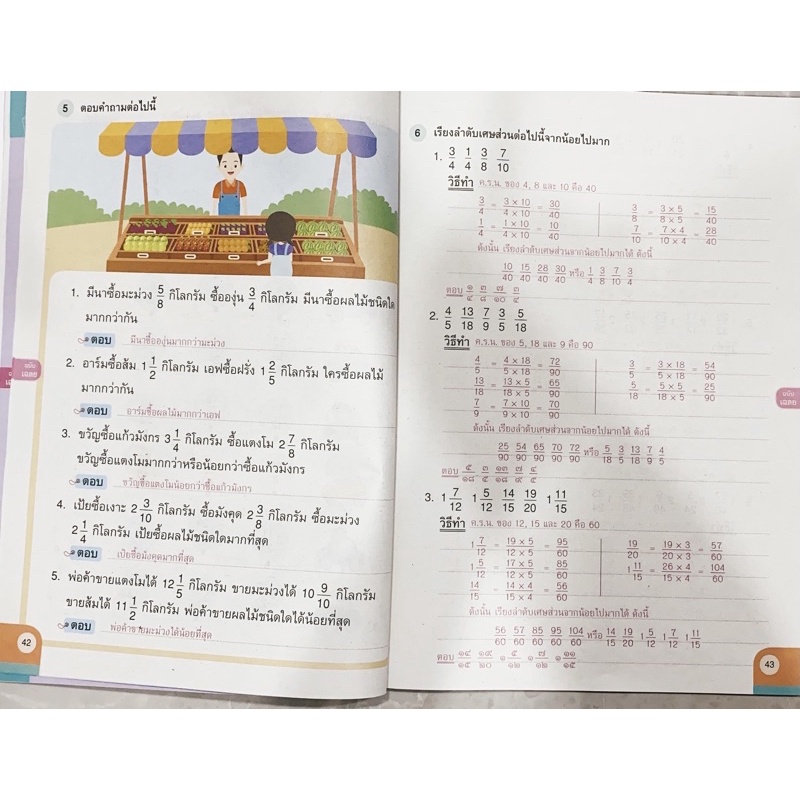 5 ตอบคำถามต่อไปนี้
1. มีนาซื้อมะม่วง 5/8 กิโลกรัม ซื้อองุ่น 3/4 กิโลกรัม มีนาซื้อผลไม้ชนิดใด
มากกว่ากัน
ตอบ มีนาซื้อองุ่นมากกว่ามะม่วง
2. อาร์มซื้อส้ม 1 1/2 กิโลกรัม เอฟซื้อฝรั่ง 1 2/5 กิโลกรัม ใครซื้อผลไม้
มากกว่ากัน
ตอบ อาร์มซื้อผลไม้มากกว่าเอฟ
3. ขวัญซื้อแก้วมังกร 3 1/4 กิโลกรัม ซื้อแตงโม 2 7/8 กิโลกรัม
ขวัญซื้อแตงโมมากกว่าหรือน้อยกว่าซื้อแก้วมังกร
ตอบ ขวัญซื้อแตงโมน้อยกว่าซื้อแก้วมังกร
4. เป้ยซื้อเงาะ 2 3/10 กิโลกรัม ซื้อมังคุด 2 3/8 กิโลกรัม ซื้อมะม่วง
2 1/4 กิโลกรัม เป้ยซื้อผลไม้ชนิดใดมากที่สุด
ตอบ เป้ยซื้อมังคุดมากที่สุด
5. พ่อค้าขายแตงโมได้ 12 1/5 กิโลกรัม ขายมะม่วงได้ 10 9/10 กิโลกรัม
ขายส้มได้ 11 1/2 กิโลกรัม พ่อค้าขายผลไม้ชนิดใดได้น้อยที่สุด
ตอบ พ่อค้าขายมะม่วงได้น้อยที่สุด
42
ฉบับ
เฉลย
6 เรียงลำดับเศษส่วนต่อไปนี้จากน้อยไปมาก
1. 3/4 1/4 3/8 7/10
วิธีทำ ค.ร.น. ของ 4, 8 และ 10 คือ 40
3/4 = 3 × 10/4 × 10 = 30/40 3/8 = 3 × 5/8 × 5 = 15/40
1/4 = 1 × 10/4 × 10 = 10/40 7/10 = 7 × 4/10 × 4 = 28/40
ดังนั้น เรียงลำดับเศษส่วนจากน้อยไปมากได้ ดังนี้
10/40 15/40 28/40 30/40 หรือ 1/4 3/8 7/10 3/4
ตอบ ๑/๔ ๓/๘ ๗/๑๐ ๓/๔
2. 4/5 13/18 7/9 3/5 5/18
วิธีทำ ค.ร.น. ของ 5, 18 และ 9 คือ 90
4/5 = 4 × 18/5 × 18 = 72/90 3/5 = 3 × 18/5 × 18 = 54/90
13/18 = 13 × 5/18 × 5 = 65/90 5/18 = 5 × 5/18 × 5 = 25/90
7/9 = 7 × 10/9 × 10 = 70/90
ดังนั้น เรียงลำดับเศษส่วนจากน้อยไปมากได้ ดังนี้
25/90 54/90 65/90 70/90 72/90 หรือ 5/18 3/5 13/18 7/9 4/5
ตอบ ๕/๑๘ ๓/๕ ๑๓/๑๘ ๗/๙ ๔/๕
3. 1 7/12 1 5/12 14/15 19/20 1 11/15
วิธีทำ ค.ร.น. ของ 12, 15 และ 20 คือ 60
1 7/12 = 19 × 5/12 × 5 = 95/60 19/20 = 19 × 3/20 × 3 = 57/60
1 5/12 = 17 × 5/12 × 5 = 85/60 1 11/15 = 26 × 4/15 × 4 = 104/60
14/15 = 14 × 4/15 × 4 = 56/60
ดังนั้น เรียงลำดับเศษส่วนจากน้อยไปมากได้ ดังนี้
56/60 57/60 85/60 95/60 104/60 หรือ 14/15 19/20 1 5/12 1 7/12 1 11/15
ตอบ ๑๔/๑๕ ๑๙/๒๐ ๑ ๕/๑๒ ๑ ๗/๑๒ ๑ ๑๑/๑๕
ฉบับ
เฉลย
43